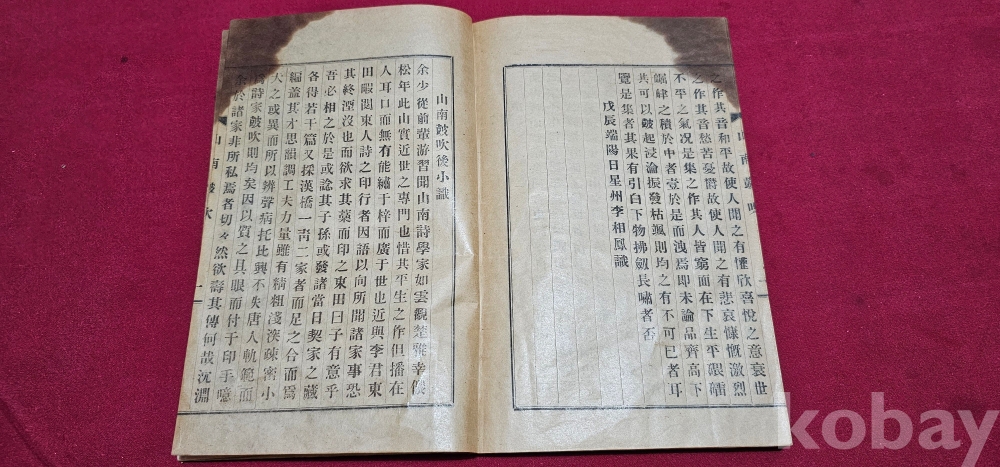 之作其音和平故使人聞之有懽欣喜悅之意衰世
之作其音愁苦憂欝故使人聞之有悲哀慷慨激烈
不平之氣况是集之作其人皆窮而在下生平礧磵
崛峍之積於中者壹於是而洩焉即未論品齊高下
其可以皷起浸淪振發枯颯則均之有不可已者耳
覽是集者其果有引白下物拂劒長嘯者否
戊辰端陽日星州李相鳳識
山南皷吹後小識
余少從前輩游習聞山南詩學家如雲觀楚
松年此山實近世之專門也惜其平生之作但播在
人耳口而無有能繡于梓而廣于世也近與李君東
田暇閱東人詩之印行者因語以向所聞諸家事恐
其終湮沒也而欲求其藁而印之東田曰子有意乎
吾必相之於是或諗其子孫或發諸當日契家之藏
各得若干篇又採漢橋一靑二家者而足之合而爲
編蓋其才思韻調工夫力量雖有精粗淺深疎密小
大之或異而所以辨聲病托比興不失唐人軌範而
爲詩家皷吹則均矣因以質之具眼而付于印手噫
余於諸家非所私焉者切々然欲壽其傳何哉沉淵
山南皷吹
一
kobay